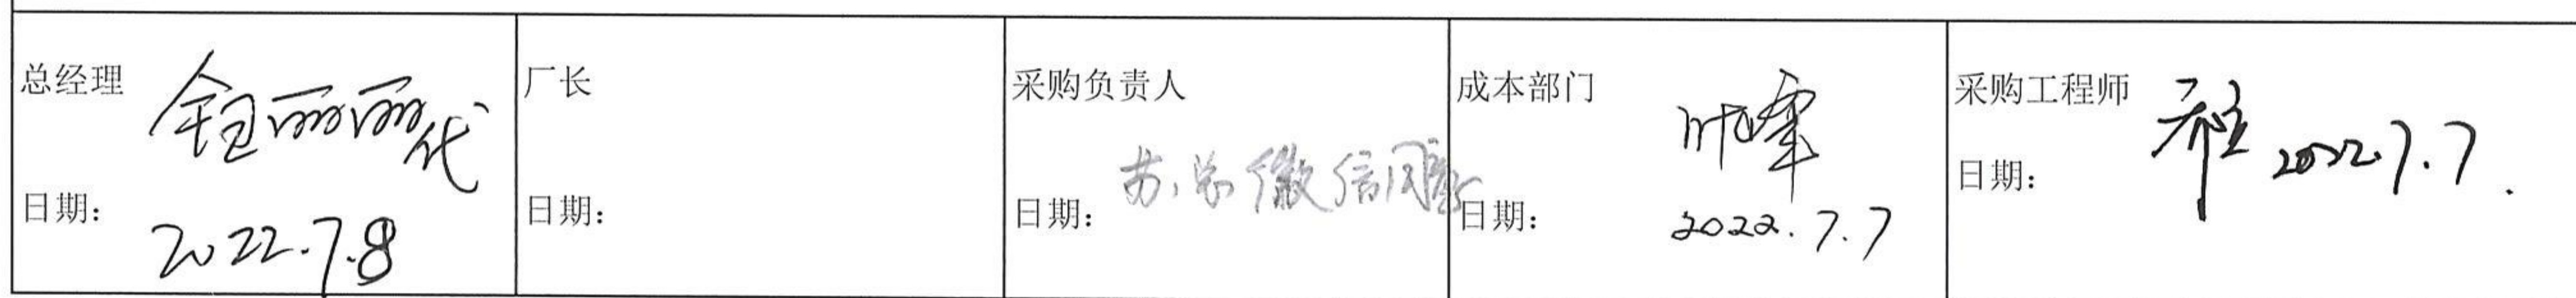 总经理
丽丽代
日期：
2022.7.8
厂长
日期：
采购负责人
苏总微信同意
日期：
成本部门
叶军
日期：
2022.7.7
采购工程师
2022.7.7.
日期：